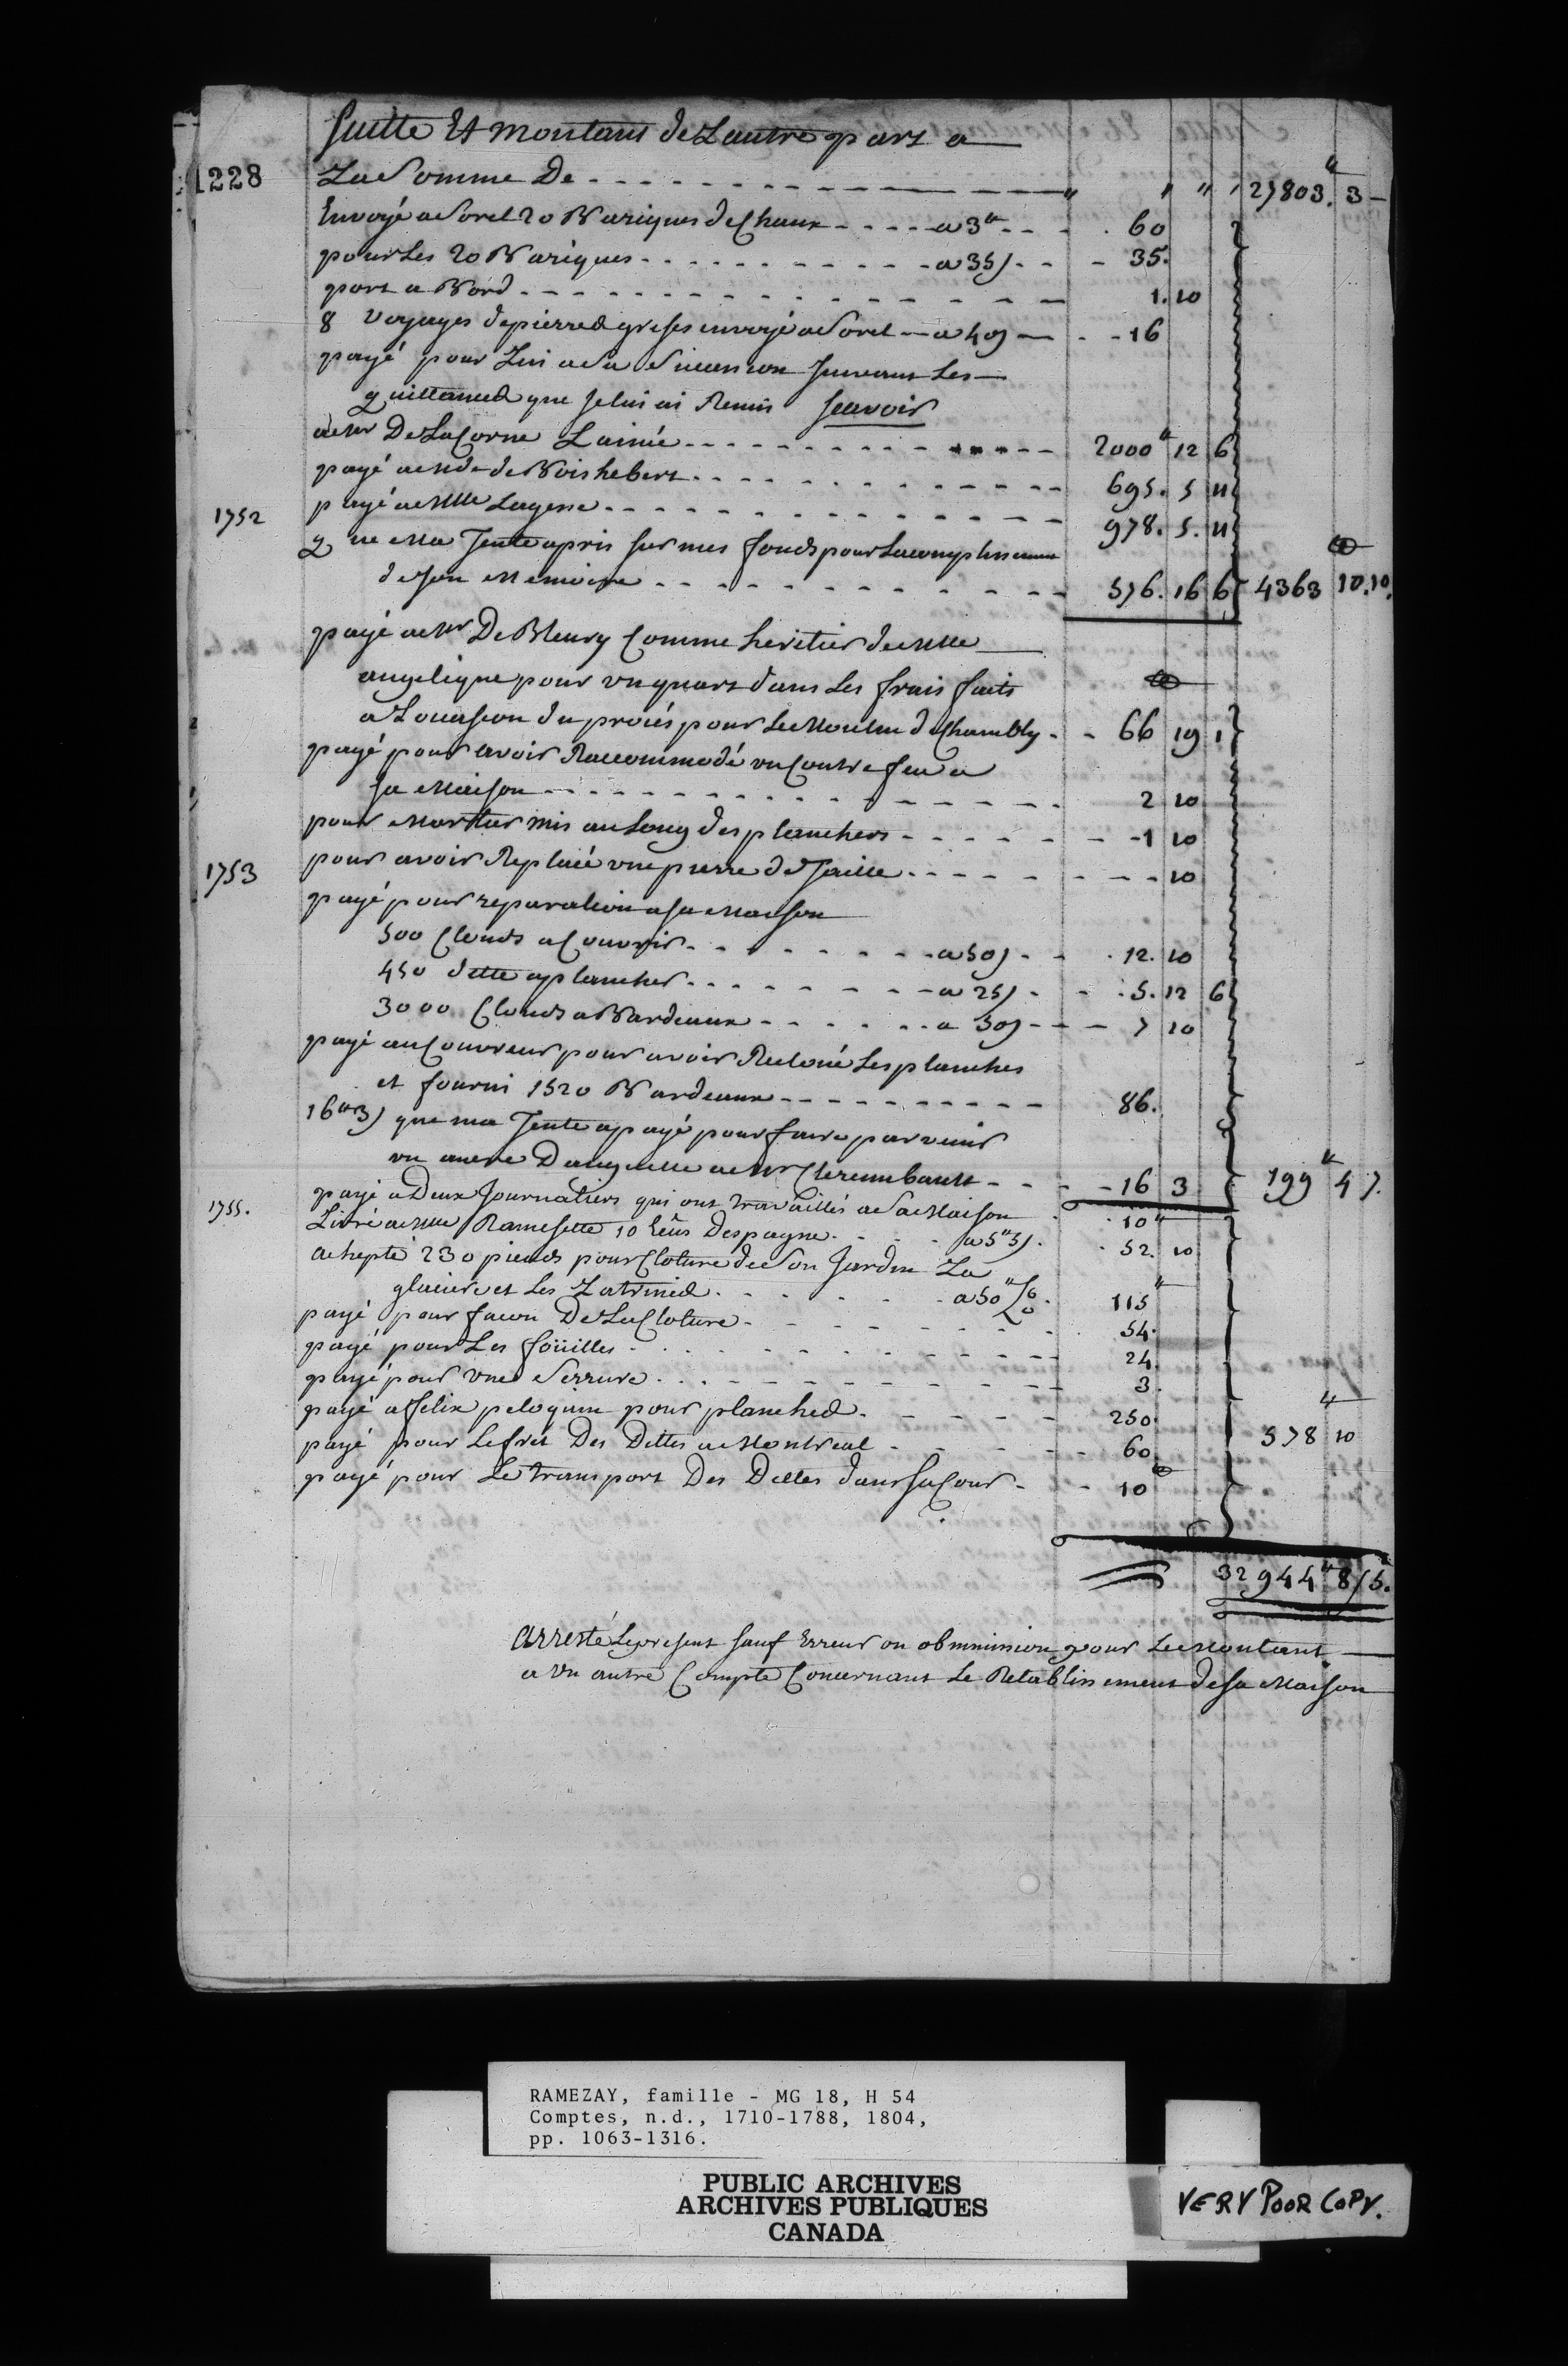 Suitte Et montant de Lautre part a
1228 La Somme De - - - " " " " 27803.# 3 -
Envoyé a Sorel 20 Bariques de Chaux - - - a 3# - - - 60
pour Les 20 Bariques - - - a 35s - - - 35.
port a Bord - - - 1. 10
8 voyages de pierred grises envoyé a Sorel - a 40s - - - 16
payé pour Lui a Sa Sucession Suivant Les
quittanced que je lui ai Remis Scavoir
a Mr De LaCorne Lainée - - - 2000# 12 6
payé a Mde de Boishebert - - - 695. 5 11
1752 payé a Mlle Lagesse - - - 978. 5. 11
que Ma Tente a pris sur mes fonds pour Lacomplissement
de Son Memoire - - - 576. 16 6 4363 10. 10.
payé a Mr De Bleury Comme heritier de Mlle
angelique pour un quart dans Les frais faits
a Locasion du procés pour Le Moulin de Chambly - - 66 19 1
payé pour avoir Raccommodé un Contre feu a
Sa Maison - - - 2 10
pour Mortier mis au Long des planchers - - - 1 10
1753 pour avoir Replacé une pierre de Taille - - - 10
payé pour reparation a sa Maison
500 Clouds a Couvrir - - - a 50s - - 12. 10
450 dette a plancher - - - a 25s - - 5. 12 6
3000 Clouds a Bardeaux - - - a 50s - - - 7 10
payé au Couvreur pour avoir Recloué Les planches
et fourni 1520 Bardeaux - - - 86.
16# 3s que ma Tente a payé pour faire parvenir
un ancre Danguille a Mr Clerembault - - - 16 3 199# 4 7.
1755. payé a Deux Journaliers qui ont travaillés a Sa Maison 10#
Livré a Mlle Ramesette 10 Despagne - - - a 5# 5s. 52. 10
achepté 230 pieuds pour Cloture de Son Jardin La
glaciere et Les Latrined - - - a 50# 115#
payé pour facon De La Cloture - - - 54.
payé pour Les foüilles - - - 24.
payé pour une Serrure - - - 3.
payé a felix peloquin pour planched - - - 250. 578# 10
payé pour Le fret Des Dittes a Montreal - - - 60
payé pour Le transport Des Dittes dans Sa Cour - - 10
32944# 8s 5.
Arresté Le present Sauf Erreur ou obmmission pour Le Montant
a un autre Compte Concernant Le Retablissement de Sa Maison
RAMEZAY, famille - MG 18, H 54
Comptes, n.d., 1710-1788, 1804,
pp. 1063-1316.
PUBLIC ARCHIVES
ARCHIVES PUBLIQUES
CANADA
VERY POOR COPY.